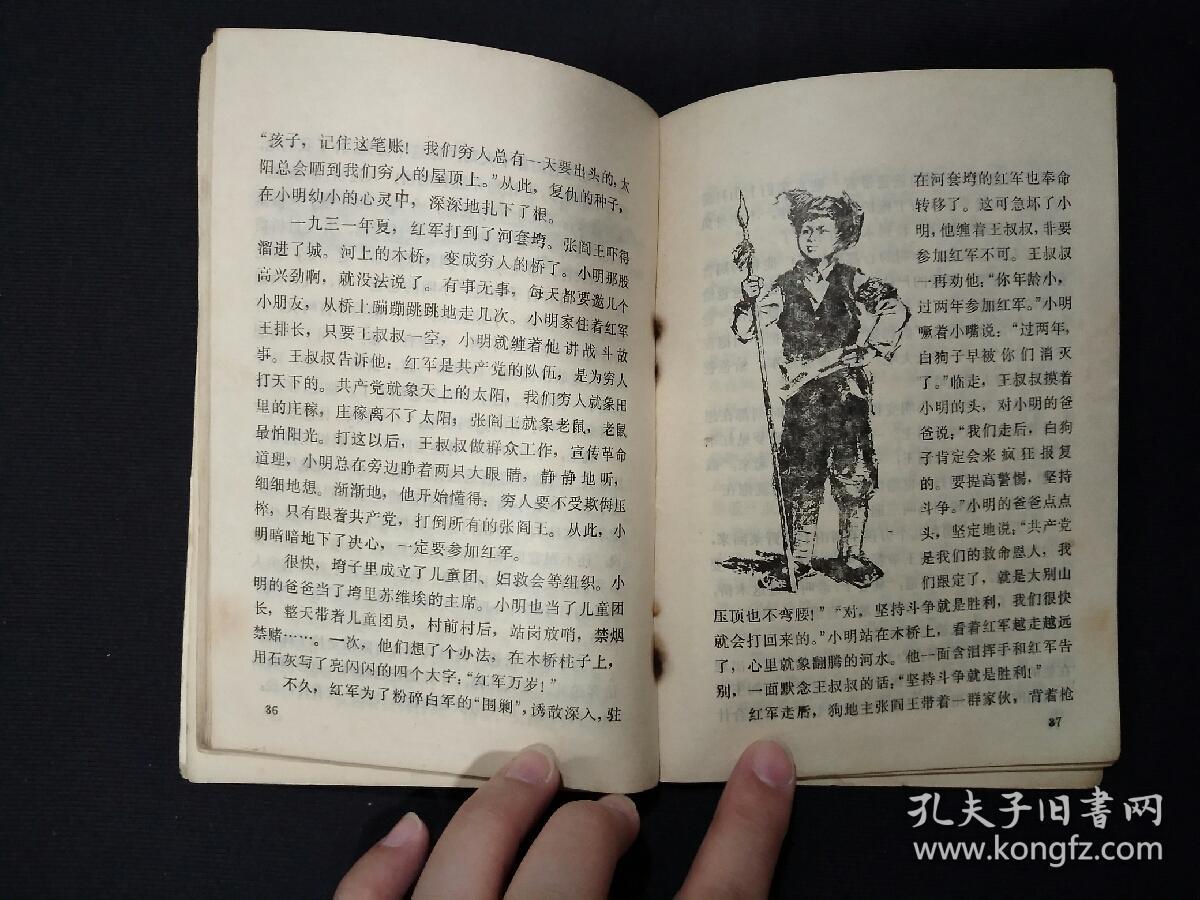 “孩子，记住这笔账！我们穷人总有一天要出头的，太
阳总会晒到我们穷人的屋顶上。”从此，复仇的种子，
在小明幼小的心灵中，深深地扎下了根。
一九三一年夏，红军打到了河套塆。张阎王吓得
溜进了城。河上的木桥，变成穷人的桥了。小明那股
高兴劲啊，就没法说了。有事无事，每天都要邀几个
小朋友，从桥上蹦蹦跳跳地走几次。小明家住着红军
王排长，只要王叔叔一空，小明就缠着他讲战斗故
事。王叔叔告诉他：红军是共产党的队伍，是为穷人
打天下的。共产党就象天上的太阳，我们穷人就象田
里的庄稼，庄稼离不了太阳；张阎王就象老鼠，老鼠
最怕阳光。打这以后，王叔叔做群众工作，宣传革命
道理，小明总在旁边睁着两只大眼睛，静静地听，
细细地想。渐渐地，他开始懂得：穷人要不受欺侮压
榨，只有跟着共产党，打倒所有的张阎王。从此，小
明暗暗地下了决心，一定要参加红军。
很快，塆子里成立了儿童团、妇救会等组织。小
明的爸爸当了塆里苏维埃的主席。小明也当了儿童团
长，整天带着儿童团员，村前村后，站岗放哨，禁烟
禁赌……。一次，他们想了个办法，在木桥柱子上，
用石灰写了亮闪闪的四个大字：“红军万岁！”
不久，红军为了粉碎白军的“围剿”，诱敌深入，驻
36
在河套塆的红军也奉命
转移了。这可急坏了小
明，他缠着王叔叔，非要
参加红军不可。王叔叔
一再劝他：“你年龄小，
过两年参加红军。”小明
噘着小嘴说：“过两年，
白狗子早被你们消灭
了。”临走，王叔叔摸着
小明的头，对小明的爸
爸说：“我们走后，白狗
子肯定会来疯狂报复
的。要提高警惕，坚持
斗争。”小明的爸爸点点
头，坚定地说：“共产党
是我们的救命恩人，我
们跟定了，就是大别山
压顶也不弯腰！”“对，坚持斗争就是胜利，我们很快
就会打回来的。”小明站在木桥上，看着红军越走越远
了，心里就象翻腾的河水。他一面含泪挥手和红军告
别，一面默念王叔叔的话：“坚持斗争就是胜利！”
红军走后，狗地主张阎王带着一群家伙，背着枪
37
孔夫子旧書网
www.kongfz.com